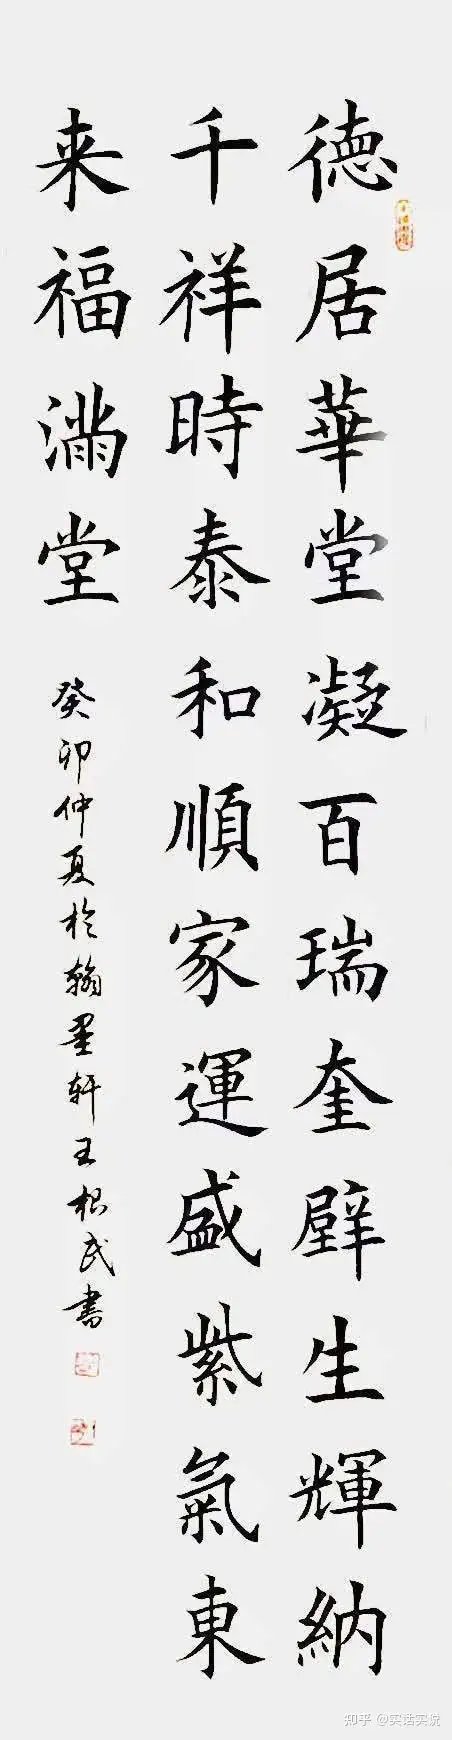 德居華堂凝百瑞奎壁生輝納
千祥時泰和順家運盛紫氣東
来福满堂
癸卯仲夏於翰墨轩王根武書
知乎 @实话实说